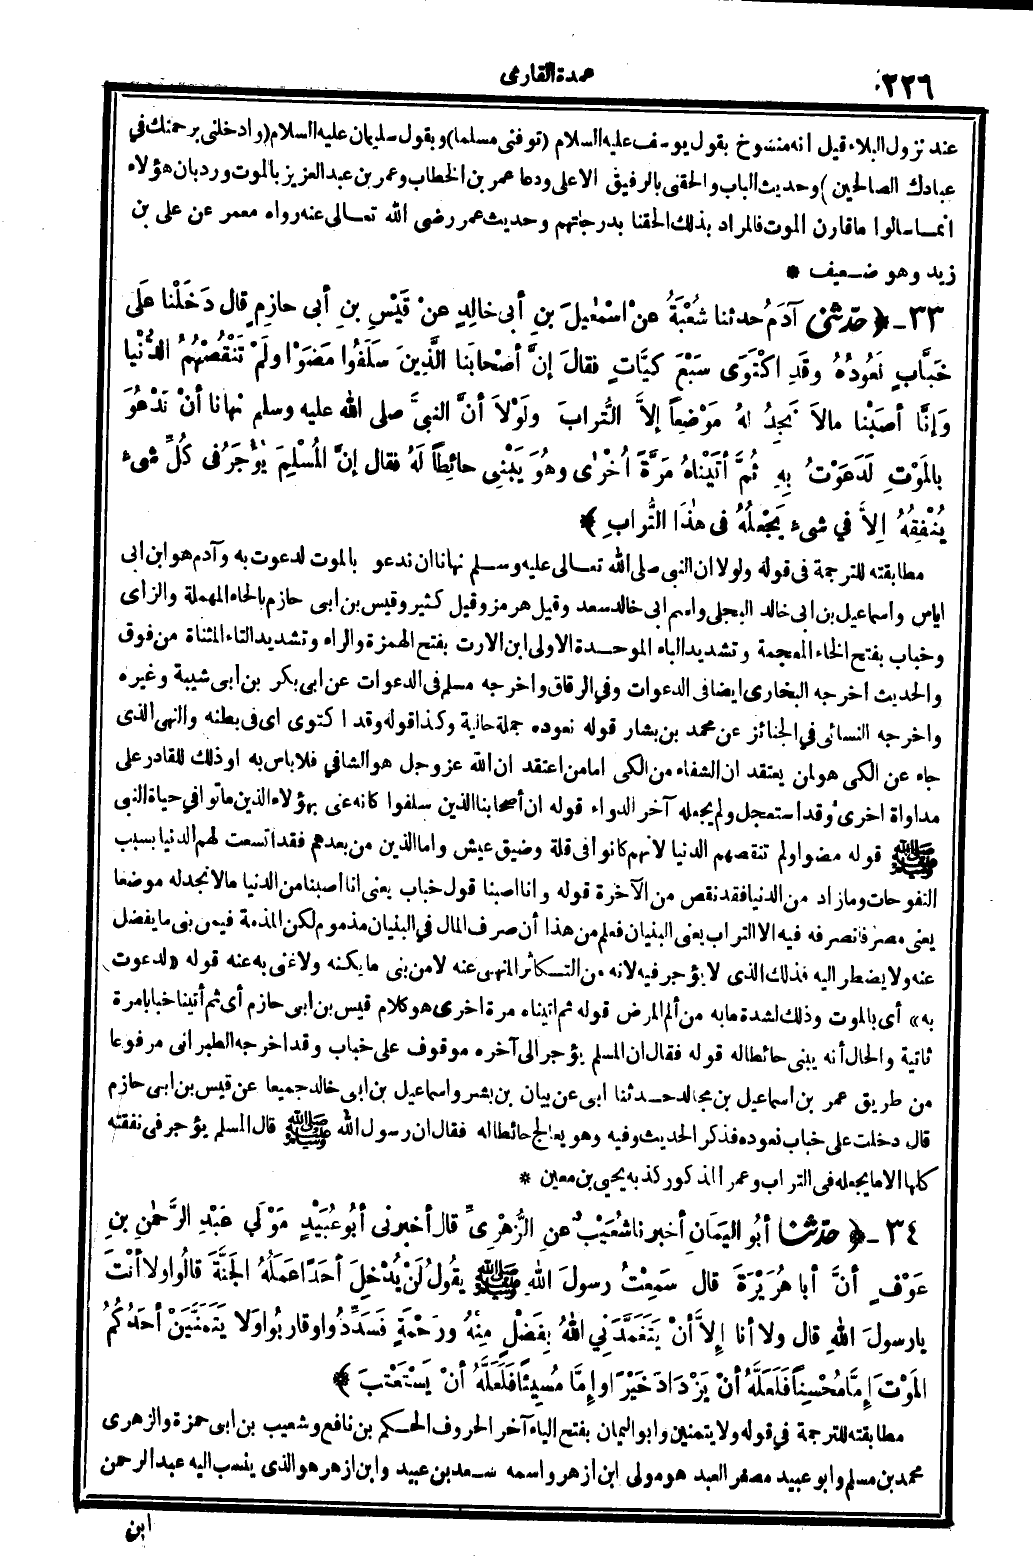 ٢٢٦
عمدة القارى
عند نزول البلاء قيل انه منسوخ بقول يوسف عليه السلام (توفنى مسلما) وبقول سليمان عليه السلام (وادخلنى برحمتك في
عبادك الصالحين) وحديث الباب والحقنى بالرفيق الاعلى ودعا عمر بن الخطاب وعمر بن عبد العزيز بالموت ورد بان هؤلاء
انما سالوا ما قارن الموت فالمراد بذلك الحقنا بدرجاتهم وحديث عمر رضى الله تعالى عنه رواه معمر عن على بن
زيد وهو ضعيف *
٣٣ - ﴿ حَدَّثَنِى آدَمُ حدثنا شُعْبَةُ عنْ اسْمٰعِيلَ بنِ أبى خالِدٍ عنْ قَيْسِ بنِ أبى حازِمٍ قال دَخَلْنا عَلَى
خَبَّابٍ نَعُودُهُ وقَدِ اكْتَوَى سَبْعَ كَيَّاتٍ فقالَ إنَّ أصْحابَنا الَّذِينَ سَلَفُوا مَضَوْا ولَمْ تَنْقُصْهُمُ الدُّنْيا
وَإنَّا أصَبْنا مالاَ نَجِدُ لهُ مَوْضِعاً إلاَّ التُّرابَ ولَوْلاَ أنَّ النبىَّ صلى الله عليه وسلم نهانا أنْ نَدْعُوَ
بالمَوْتِ لَدَعَوْتُ بِهِ ثُمَّ أتَيْناهُ مَرَّةً أُخْرٰى وهُوَ يَبْنِى حائِطاً لَهُ فقال إنَّ المُسْلِمَ يُؤْجَرُ فى كُلِّ شىْءٍ
يُنْفِقُهُ إلاَّ في شىْءٍ يَجْعَلُهُ فى هٰذَا التُّرابِ ﴾ *
مطابقته للترجمة فى قوله ولولا ان النبى صلى الله تعالى عليه وسلم نهانا ان ندعو بالموت لدعوت به وآدم هو ابن ابى
اياس واسماعيل بن ابى خالد البجلى واسم ابى خالد سعد وقيل هرمز وقيل كثير وقيس بن ابى حازم بالحاء المهملة والزاى
وخباب بفتح الخاء المعجمة وتشديد الباء الموحدة الاولى ابن الارت بفتح الهمزة والراء وتشديد التاء المثناة من فوق
والحديث اخرجه البخارى ايضا فى الدعوات وفي الرقاق واخرجه مسلم فى الدعوات عن ابى بكر بن ابى شيبة وغيره
واخرجه النسائى في الجنائز عن محمد بن بشار قوله نعوده جملة حالية وكذا قوله وقد اكتوى اى فى بطنه والنهى الذى
جاء عن الكى هو لمن يعتقد ان الشفاء من الكى اما من اعتقد ان الله عز وجل هو الشافي فلا باس به او ذلك للقادر على
مداواة اخرى وقد استعجل ولم يجعله آخر الدواء قوله ان أصحابنا الذين سلفوا كانه عنى بهؤلاء الذين ماتوا في حياة النبى
ﷺ قوله مضوا ولم تنقصهم الدنيا لانهم كانوا فى قلة وضيق عيش واما الذين من بعدهم فقد اتسعت لهم الدنيا بسبب
الفتوحات وما زاد من الدنيا فقد نقص من الآخرة قوله وانا اصبنا قول خباب يعنى انا اصبنا من الدنيا مالا نجد له موضعا
يعنى مصرفا نصرفه فيه الا التراب يعنى البنيان فعلم من هذا أن صرف المال في البنيان مذموم لكن المذمة فيمن بنى ما يفضل
عنه ولا يضطر اليه فذلك الذى لا يؤجر فيه لانه من التكاثر المنهى عنه لا من بنى ما يكنه ولا غنى به عنه قوله «لدعوت
به» أى بالموت وذلك لشدة ما به من ألم المرض قوله ثم اتيناه مرة اخرى هو كلام قيس بن ابى حازم أى ثم أتينا خبابا مرة
ثانية والحال أنه يبنى حائطا له قوله فقال ان المسلم يؤجر الى آخره موقوف على خباب وقد اخرجه الطبرانى مرفوعا
من طريق عمر بن اسماعيل بن مجالد حدثنا ابى عن بيان بن بشر واسماعيل بن ابى خالد جميعا عن قيس بن ابى حازم
قال دخلت على خباب نعوده فذكر الحديث وفيه وهو يعالج حائطا له فقال ان رسول الله ﷺ قال المسلم يؤجر فى نفقته
كلها الا ما يجعله فى التراب وعمر المذكور كذبه يحيى بن معين *
٣٤ - ﴿ حَدَّثَنا أبُو اليَمانِ أخبرنا شُعَيْبٌ عنِ الزُّهْرِىِّ قال أخبرنى أبُو عُبَيْدٍ مَوْلي عَبْدِ الرَّحْمٰنِ بنِ
عَوْفٍ أنَّ أبا هُرَيْرَةَ قال سَمِعْتُ رسولَ اللهِ ﷺ يقُولُ لَنْ يُدْخِلَ أحَدًا عَمَلُهُ الجَنَّةَ قالُوا ولا أنْتَ
يارسولَ اللهِ قال ولا أنا إلاَّ أنْ يَتَغَمَّدَنِي اللهُ بِفَضْلٍ مِنْهُ ورَحْمَةٍ فَسَدِّدُوا وقارِبُوا ولا يَتَمَنَّيَنَّ أحَدُكُمُ
المَوْتَ إمَّا مُحْسِناً فَلَعَلَّهُ أنْ يَزْدَادَ خَيْرًا وإمَّا مُسِيئًا فَلَعَلَّهُ أنْ يَسْتَعْتِبَ ﴾ *
مطابقته للترجمة في قوله ولا يتمنين وابو اليمان بفتح الياء آخر الحروف الحكم بن نافع وشعيب بن ابى حمزة والزهرى
محمد بن مسلم وابو عبيد مصغر العبد هو مولى ابن ازهر واسمه سعد بن عبيد وابن ازهر هو الذى ينسب اليه عبد الرحمن
ابن